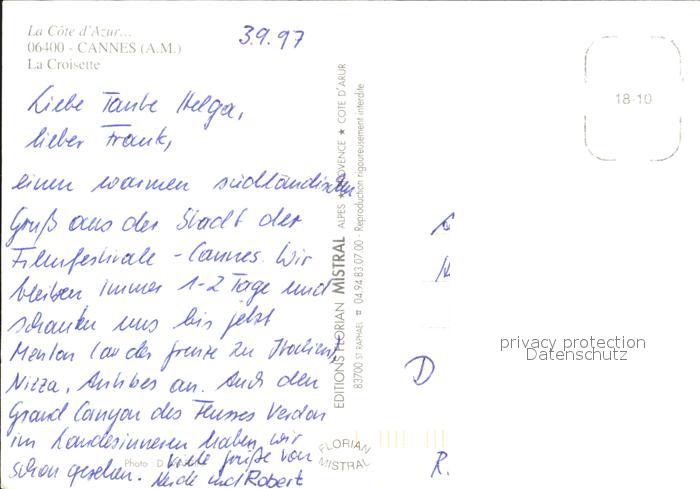 La Côte d'Azur...
06400 - CANNES (A.M.)
La Croisette
3.9.97
Liebe Tante Helga,
lieber Frank,
einen warmen südländischen
Gruß aus der Stadt der
Filmfestivale - Cannes. Wir
bleiben immer 1-2 Tage und
schauten uns bis jetzt
Menton (an der Grenze zu Italien),
Nizza, Antibes an. Auch den
Grand Canyon des Flusses Verdon
im Landesinneren haben wir
schon gesehen. Viele Grüße von
Heide und Robert
Photo : D.
EDITIONS FLORIAN MISTRAL ALPES ★ PROVENCE ★ COTE D'AZUR
83700 ST RAPHAEL ☎ 04.94.83.07.00 - Reproduction rigoureusement interdite
FLORIAN
MISTRAL
18-10
D
R.
privacy protection
Datenschutz